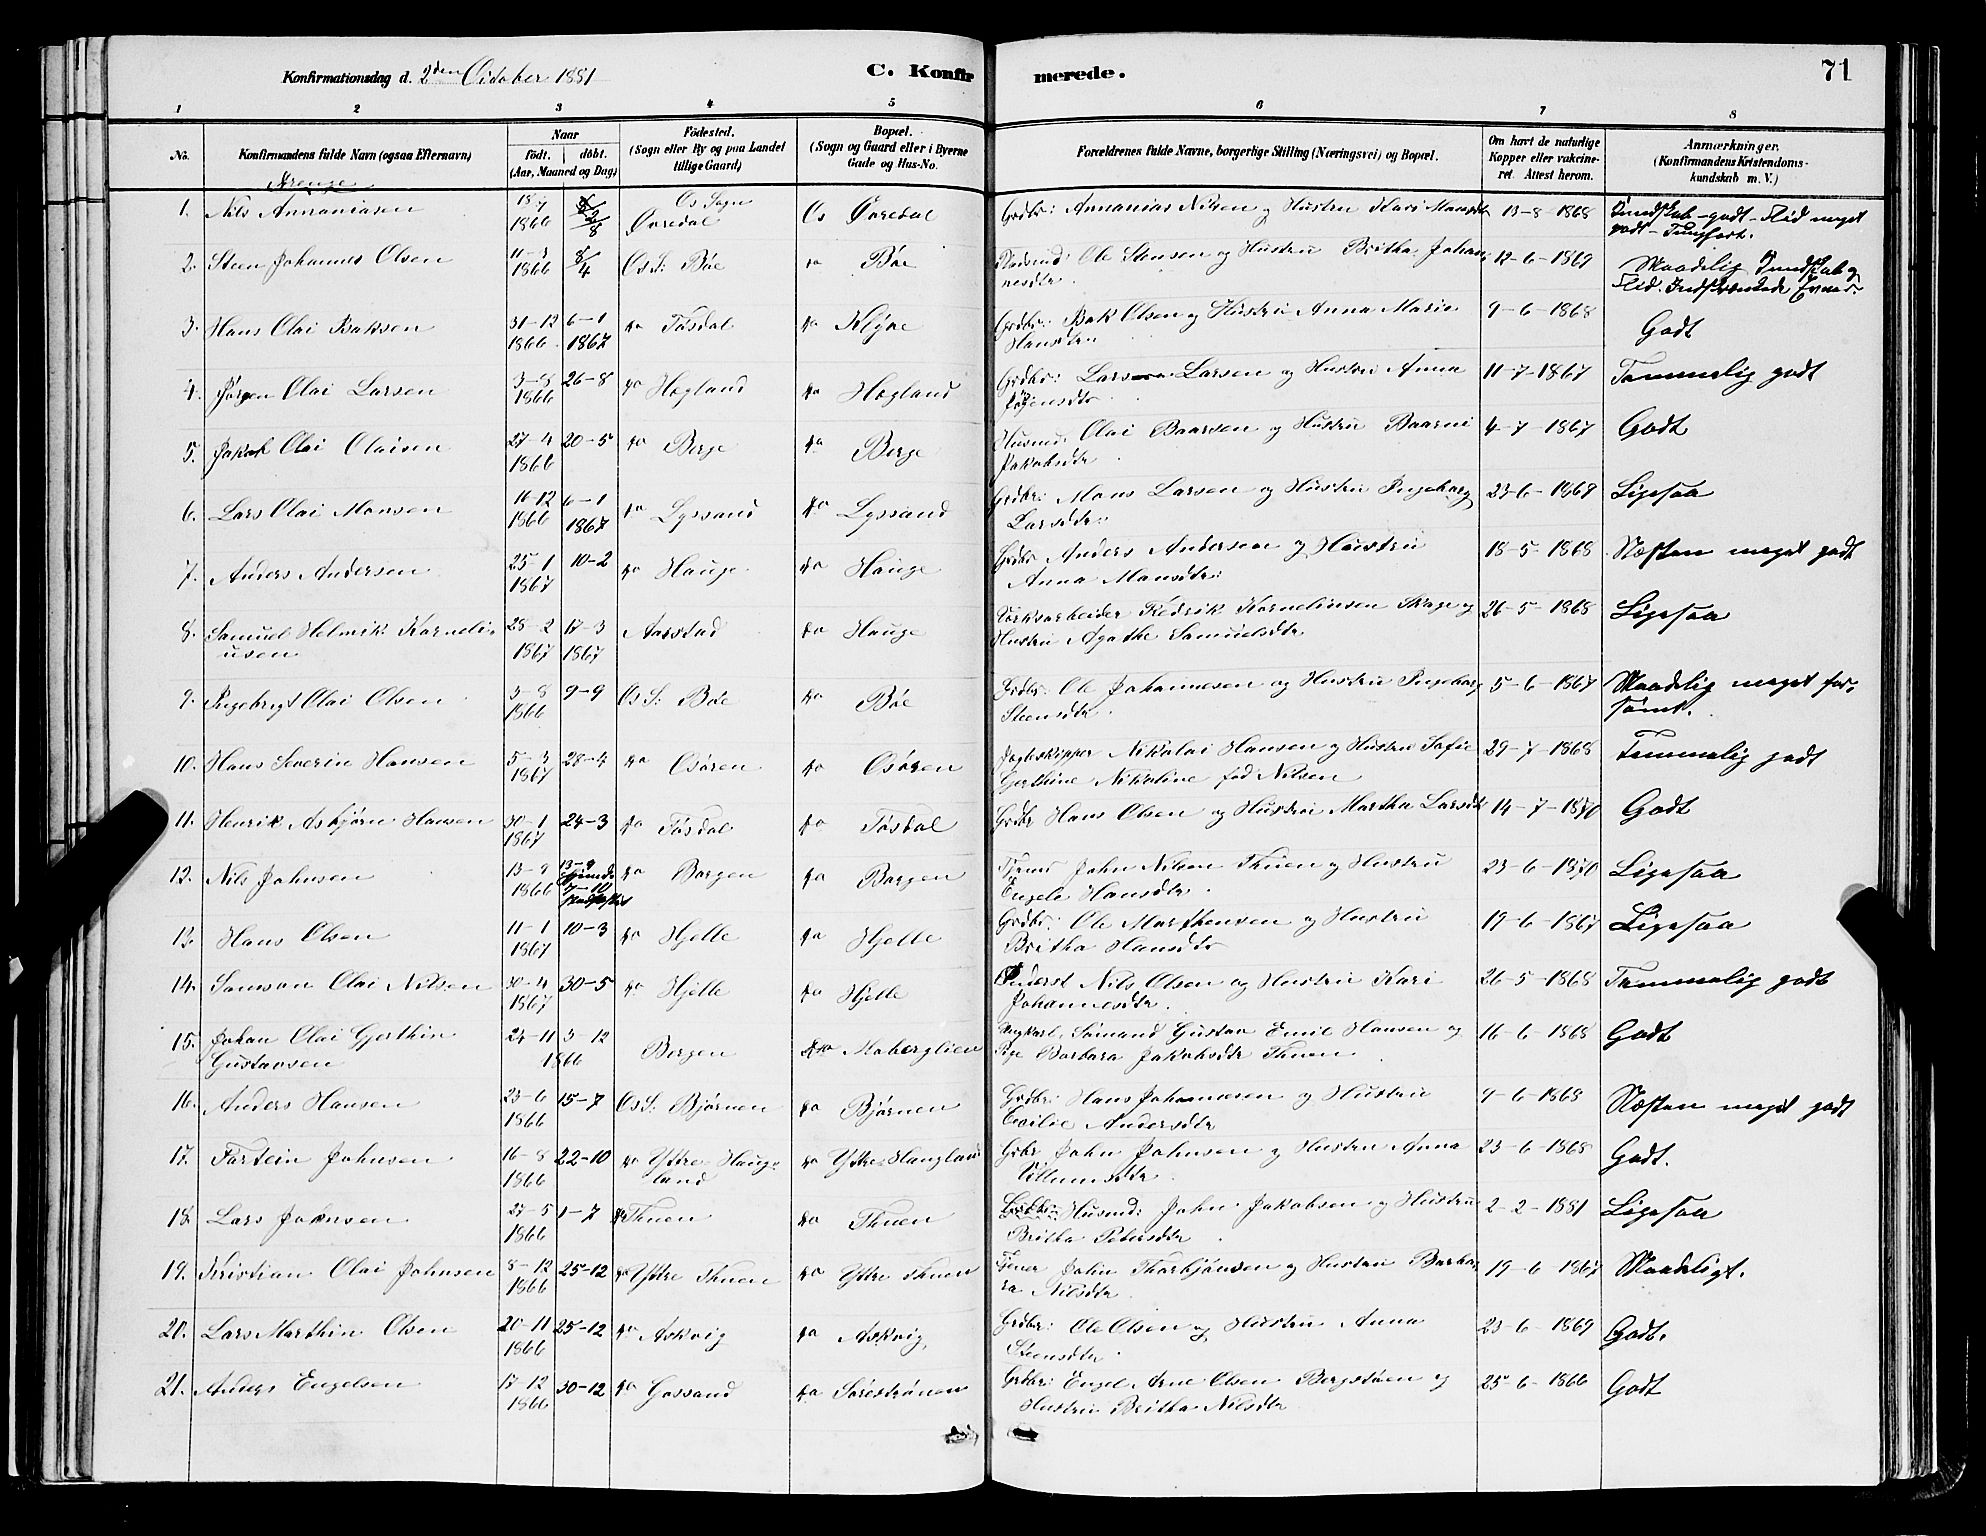 Konfirmationsdag d. 2den October 1881 C. Konfirmerede. 71
1 2 3 4 5 6 7 8
No. Konfirmandens fulde Navn (ogsaa Efternavn) Naar født. døbt. (Aar, Maaned og Dag) Fødested. (Sogn eller By og paa Landet tillige Gaard) Bopæl. (Sogn og Gaard eller i Byerne Gade og Hus-No. Forældrenes fulde Navne, borgerlige Stilling (Næringsvei) og Bopæl. Om havt de naturlige Kopper eller vakcineret. Attest herom. Anmærkninger. (Konfirmandens Kristendomskundskab m. V.)
Drenge
1. Nils Annaniasen 18-7 1866 2/8 Os Sogn Øvredal Os Øvredal Grdbr: Annanias Nilsen og Hustru Kari Monsdtr 13-8-1868 Kundskab-godt-Flid meget godt- Tungfort.
2. Steen Johannes Olsen 11-3 1866 8/4 Os S: Bøe do Bøe Pladsmd: Ole Stensen og Hustru Britha Johannesdtr. 12-6-1869 Maadelig Kundskab og Flid. Indskrænkede Evner.
3. Hans Olai Baksen 31-12 1866. 6-1 1867 do Tøsdal do Klyve Grdbr: Bak Olsen og Hustru Anna Marie Hansdtr 9-6-1868 Godt
4. Jørgen Olai Larsen 3-8 1866 26-8 do Hegland do Hegland Grdbr: Lars Larsen og Hustru Anna Jørgensdtr 11-7-1867 Temmelig godt
5. Jakob Olai Olaisen 27-4 1866 20-5 do Berge do Berge Husmd: Olai Baarsen og Hustru Baarni Jakobsdtr 4-7-1867 Godt
6. Lars Olai Monsen 16-12 1866 6-1 1867 do Lyssand do Lyssand Grdbr: Mons Larsen og Hustru Ingeborg Larsdtr: 23-6-1869 Ligesaa
7. Anders Andersen 25-1 1867 10-2 do Hauge do Hauge Grdbr Anders Andersen og Hustru Anna Monsdtr: 18-5-1868 Næsten meget godt
8. Samuel Helmik Korneliusen 28-2 1867 17-3 1867 Aarstad do Hauge Værksarbeider Fredrik Korneliusen Skage og Hustru Agathe Samuelsdtr 26-5-1868 Ligesaa
9. Ingebrigt Olai Olsen 3-8 1866 9-9 Os S: Bøe do Bøe Grdbr: Ole Johannesen og Hustru Ingeborg Steensdtr. 5-6-1867 Maadelig meget forsømt.
10. Hans Severin Hansen 5-3 1867 28-4 do Osøren do Osøren Jagteskipper Nikolai Hansen og Hustru Sofie Gerthine Nikoline fød Nilsen 29-7-1868 Temmelig godt
11. Henrik Asbjørn Hansen 30-1 1867 24-3 do Tøsdal do Tøsdal Grdbr Hans Olsen og Hustru Martha Larsdtr 14-7-1870 Godt
12. Nils Johnsen 13-9 1866 13-9 hjemdøbt 7-10 stadfæstet do Borgen do Borgen John Nilsen Thuen og Hustru Engele Hansdtr. 23-6-1870 Ligesaa
13. Hans Olsen 11-1 1867 10-3 do Hjelle do Hjelle Grdbr: Ole Marthensen og Hustru Britha Hansdtr 19-6-1867 Ligesaa
14. Samson Olai Nilsen 30-4 1867 30-5 do Hjelle do Hjelle Inderst Nils Olsen og Hustru Kari Johannesdtr. 26-5-1868 Temmelig godt
15. Johan Olai Gjerthin Gustavsen 24-11 3-12 1866 Bergen do Moberglien Ungkarl. Sømand Gustav Emil Hansen og Pige Barbara Jakobsdtr Thuen 16-6-1868 Godt
16. Anders Hansen 23-6 1866 15-7 Os S: Bjørnen do Bjørnen Grdbr: Hans Johannesen og Hustru Cecilie Andersdtr 9-6-1868 Næsten meget godt
17. Torstein Johnsen 16-8 1866 22-10 do Yttre Haugland do Yttre Haugland Grdbr John Johnsen og Hustru Anna Villumsdtr. 23-6-1868 Godt.
18. Lars Johnsen 27-5 1866 1-7 Thuen do Thuen Husmd: John Jakobsen og Hustru Britha Petersdtr 2-2-1881 Ligesaa
19. Kristian Olai Johnsen 8-12 1866 25-12 do Yttre Thuen do Yttre Thuen Tjener John Thorbjønsen og Hustru Barbara Nilsdtr. 19-6 1867 Maadeligt.
20. Lars Marthin Olsen 20-11 1866 25-12 do Askvig do Askvig. Grdbr: Ole Olsen og Hustru Anna Steensdtr 23-6-1869 Godt.
21. Anders Engelsen 17-12 1866 30-12 do Gassand do Sørestrønen Grdbr: Engel Arne Olsen Bergstøen og Hustru Britha Nilsdtr 25-6-1866 Godt